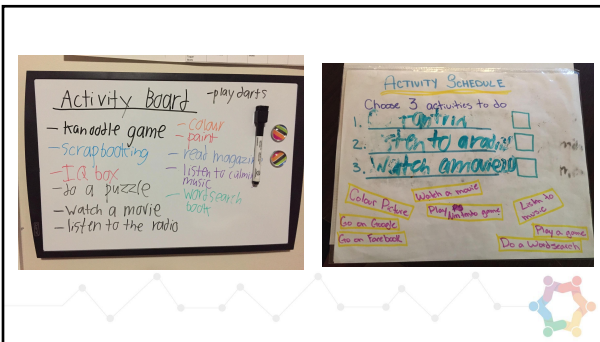 Activity Board
- play darts
- Kanoodle game
- scrapbooking
- IQ box
- do a puzzle
- watch a movie
- listen to the radio
- colour
- paint
- read magazin
- listen to calming
music
- wordsearch
book
ACTIVITY SCHEDULE
Choose 3 activities to do
1.
2. isten to aradio
3. Watch amovie
Colour Picture
Watch a movie
Play Nintendo game
Listen to
music
Go on Google
Go on Facebook
Play a game
Do a Wordsearch